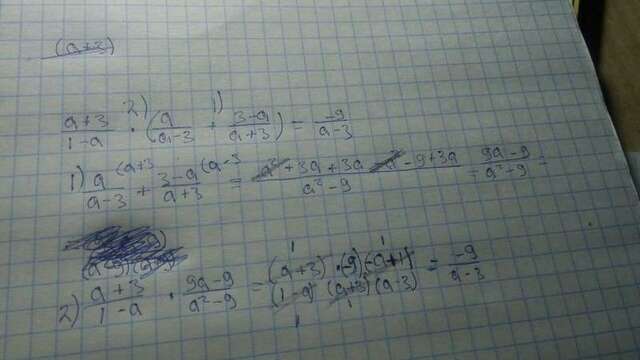 (a+3)
2) 1)
a+3/1-a · (a/a-3 + 3-a/a+3) = -9/a-3
1) a(a+3/a-3 + 3-a(a-3/a+3 = a² +3a+3a -a² -9+3a/a²-9 = 9a-9/a²-9 =
2) a+3/1-a · 9a-9/a²-9 = (a+3)·(-9)(-a+1)/(1-a)(a+3)(a-3) = -9/a-3